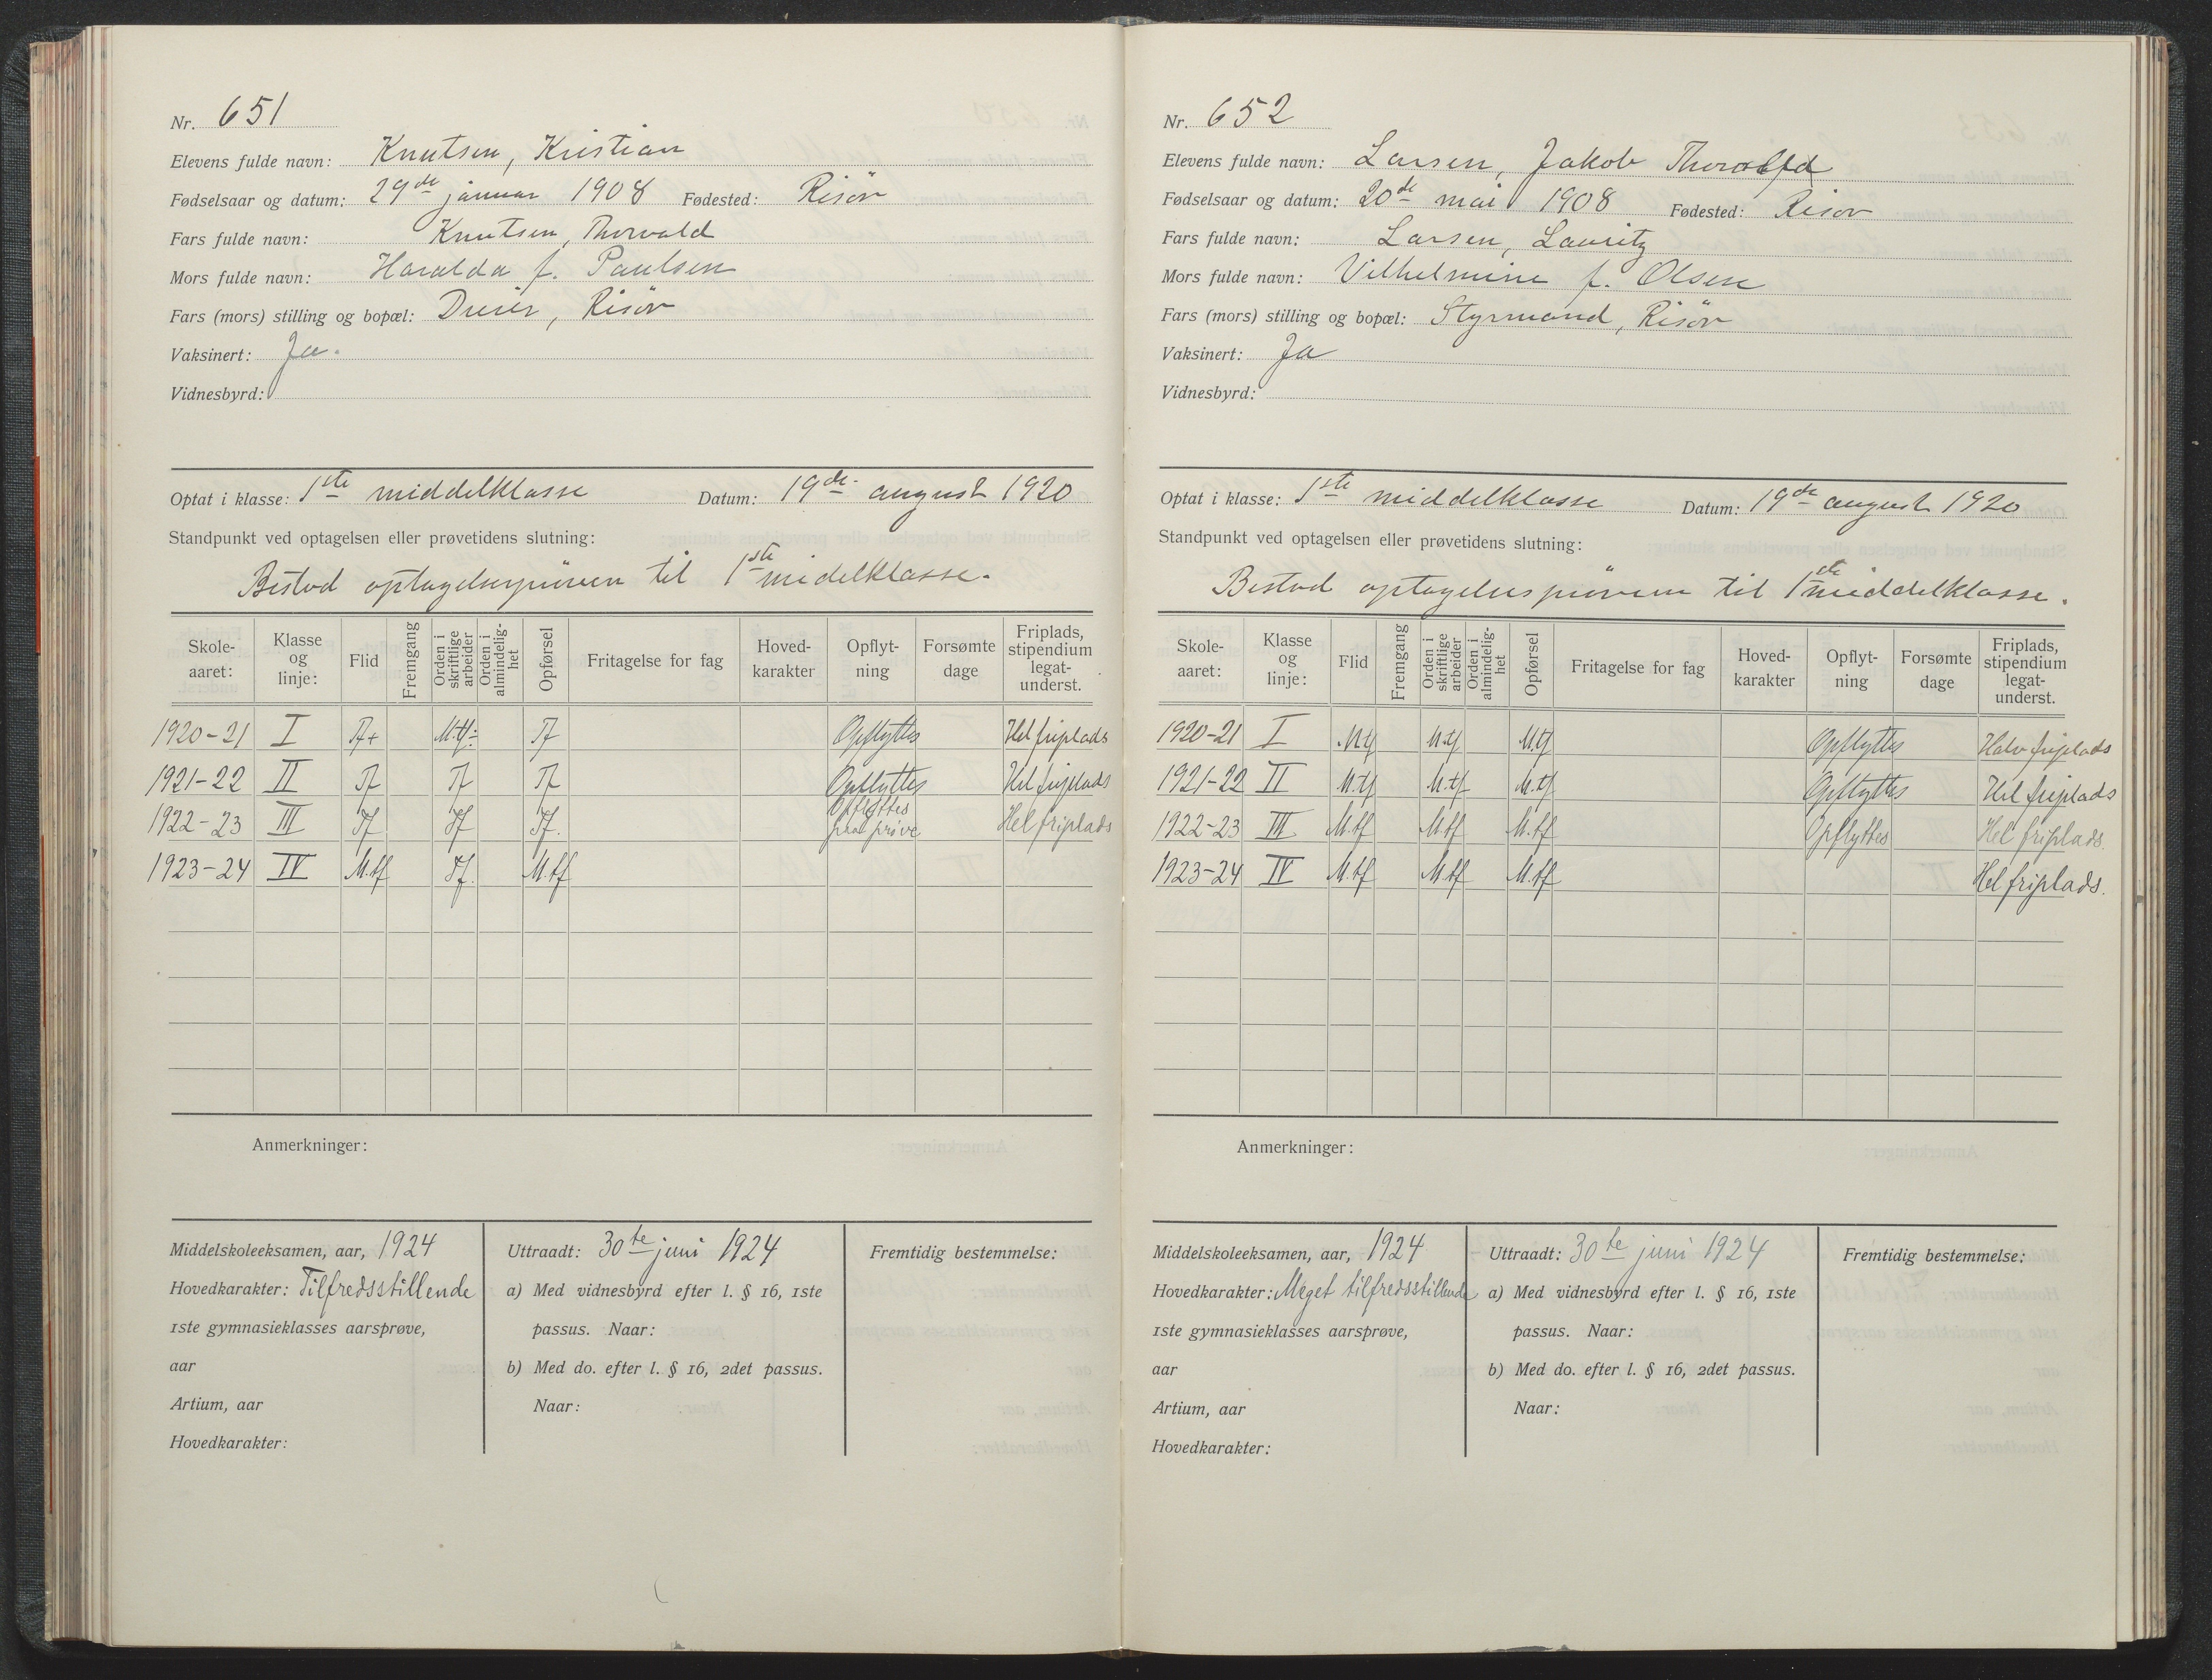 Nr. 651
Elevens fulde navn: Knutsen, Kristian
Fødselsaar og datum: 29de januar 1908 Fødested: Risör
Fars fulde navn: Knutsen, Thorvald
Mors fulde navn: Haralda f. Paulsen
Fars (mors) stilling og bopæl: Dreier, Risör
Vaksinert: Ja.
Vidnesbyrd:
Optat i klasse: 1ste middelklasse Datum: 19de august 1920
Standpunkt ved optagelsen eller prøvetidens slutning:
Bestod optagelsespröven til 1ste midelklasse.
Skole-aaret: Klasse og linje: Flid Fremgang Orden i skriftlige arbeider Orden i almindelig-het Opførsel Fritagelse for fag Hoved-karakter Opflyt-ning Forsømte dage Friplads, stipendium legat-underst.
1920-21 I Tf+ M.tf÷ Tf Opflyttes Hel friplads
1921-22 II Tf Tf Tf Opflyttes Hel friplads
1922-23 III Tf Tf Tf. Opflyttes paa prøve Hel friplads
1923-24 IV M.tf Tf. M.tf
Anmerkninger:
Middelskoleeksamen, aar, 1924
Hovedkarakter: Tilfredsstillende
1ste gymnasieklasses aarsprøve,
aar
Artium, aar
Hovedkarakter:
Uttraadt: 30te juni 1924
a) Med vidnesbyrd efter l. § 16, 1ste
passus. Naar:
b) Med do. efter l. § 16, 2det passus.
Naar:
Fremtidig bestemmelse:
Nr. 652
Elevens fulde navn: Larsen, Jakob Thoralf
Fødselsaar og datum: 20de mai 1908 Fødested: Risör
Fars fulde navn: Larsen, Lauritz
Mors fulde navn: Vilhelmine f. Olsen
Fars (mors) stilling og bopæl: Styrmand, Risör
Vaksinert: Ja
Vidnesbyrd:
Optat i klasse: 1ste middelklasse Datum: 19de august 1920
Standpunkt ved optagelsen eller prøvetidens slutning:
Bestod optagelsespröven til 1ste middelklasse.
Skole-aaret: Klasse og linje: Flid Fremgang Orden i skriftlige arbeider Orden i almindelig-het Opførsel Fritagelse for fag Hoved-karakter Opflyt-ning Forsømte dage Friplads, stipendium legat-underst.
1920-21 I M.tf M.tf M.tf Opflyttes Halv friplads
1921-22 II M.tf M.tf M.tf Opflyttes Hel friplads
1922-23 III M.tf M.tf M.tf Opflyttes Hel friplads.
1923-24 IV M.tf M.tf M.tf Hel friplads.
Anmerkninger:
Middelskoleeksamen, aar, 1924
Hovedkarakter: Meget tilfredsstillende
1ste gymnasieklasses aarsprøve,
aar
Artium, aar
Hovedkarakter:
Uttraadt: 30te juni 1924
a) Med vidnesbyrd efter l. § 16, 1ste
passus. Naar:
b) Med do. efter l. § 16, 2det passus.
Naar:
Fremtidig bestemmelse: